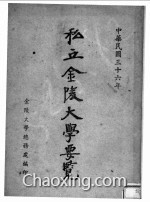 中華民國三十六年
私立金陵大學要覽
金陵大學總務處編印
Chaoxing.com